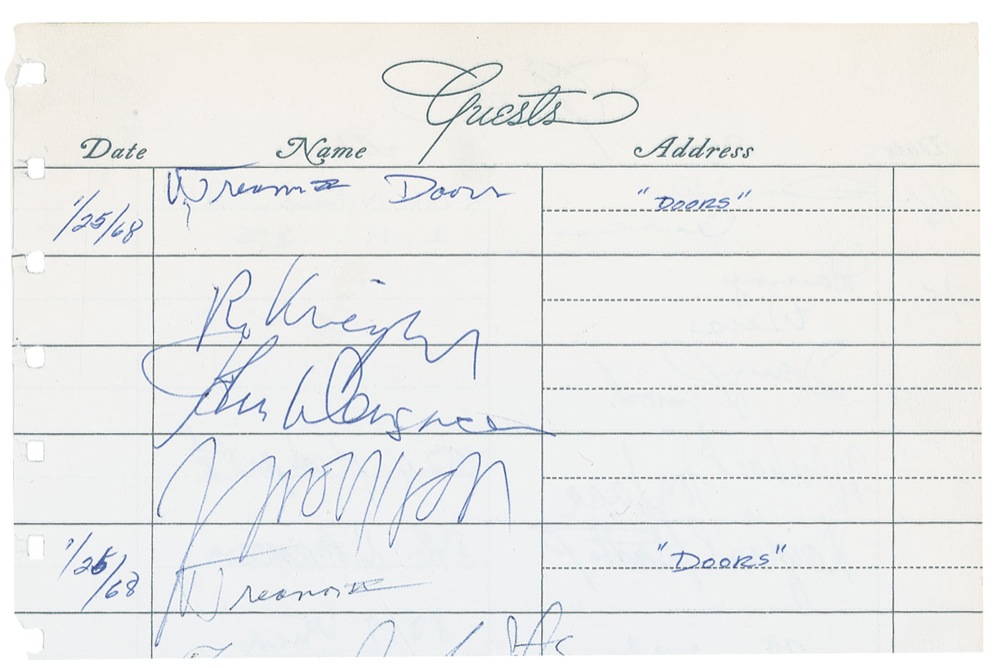 Guests
Date Name Address
1/25/68 Doors "DOORS"
R. Krieger
John Densmore
J Morrison
1/26/68 "DOORS"